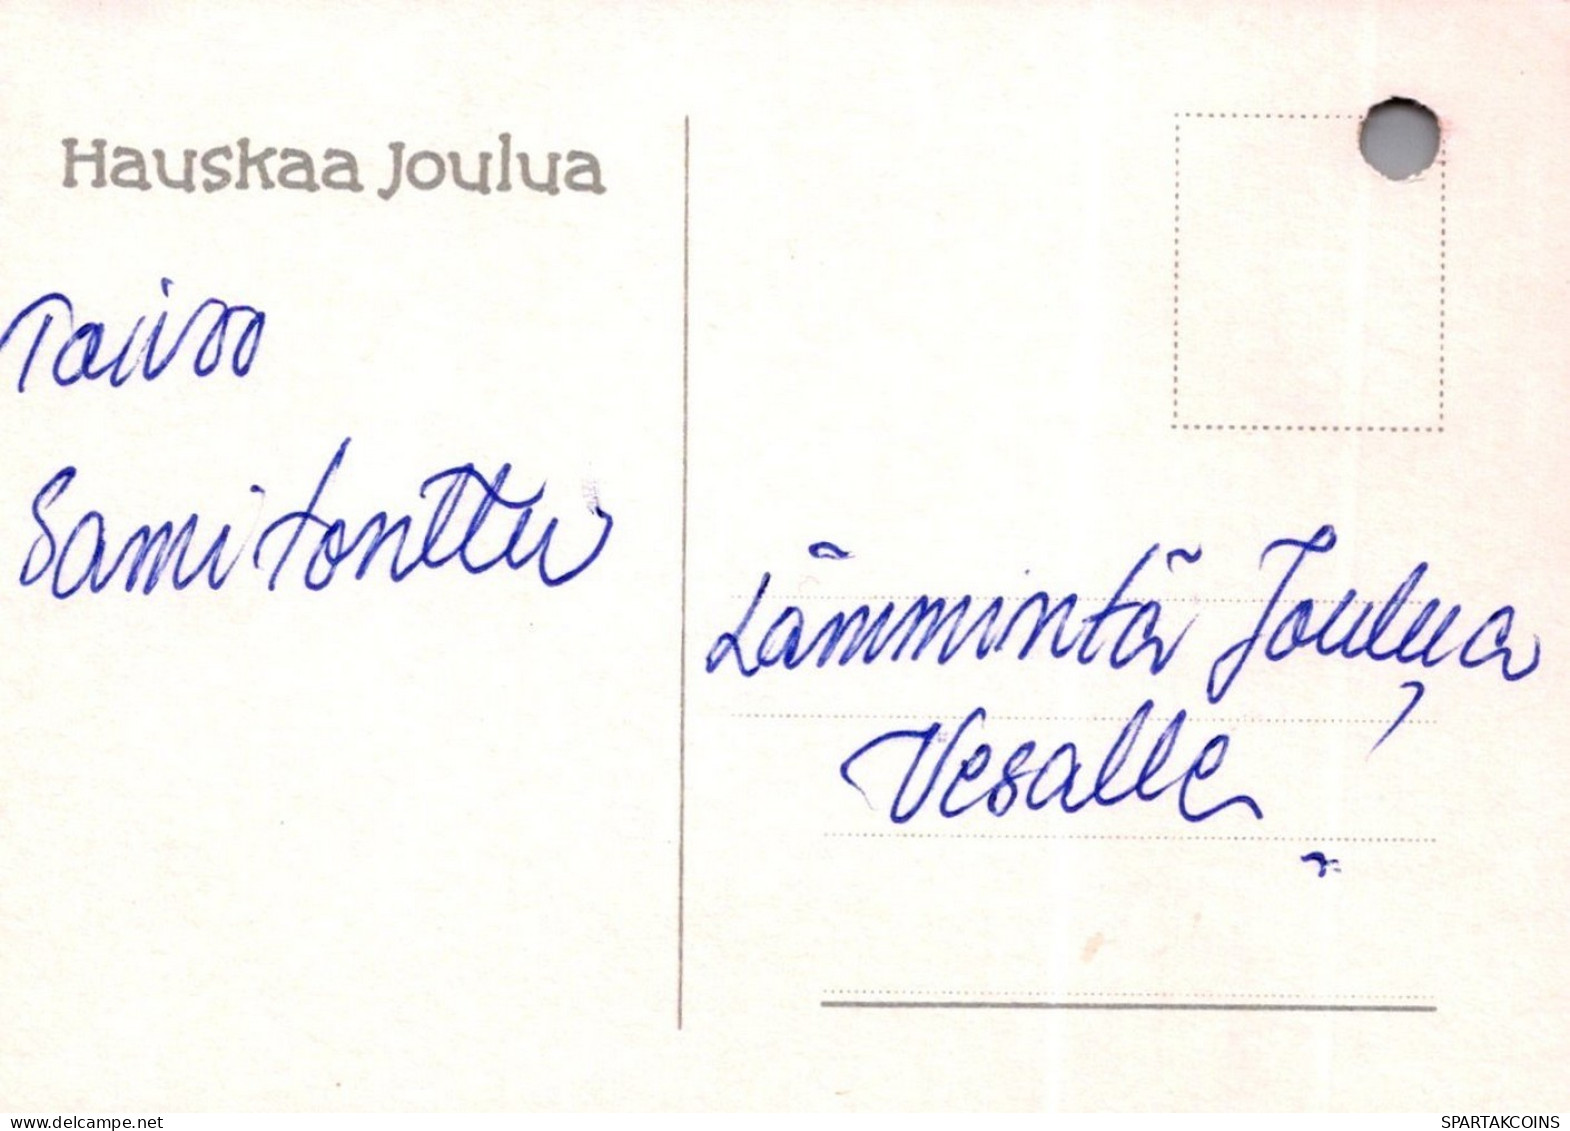 Hauskaa Joulua
Toivoo
Samitonttu
Lämmintä Joulua
Vesalle
www.delcampe.net
SPARTAKCOINS